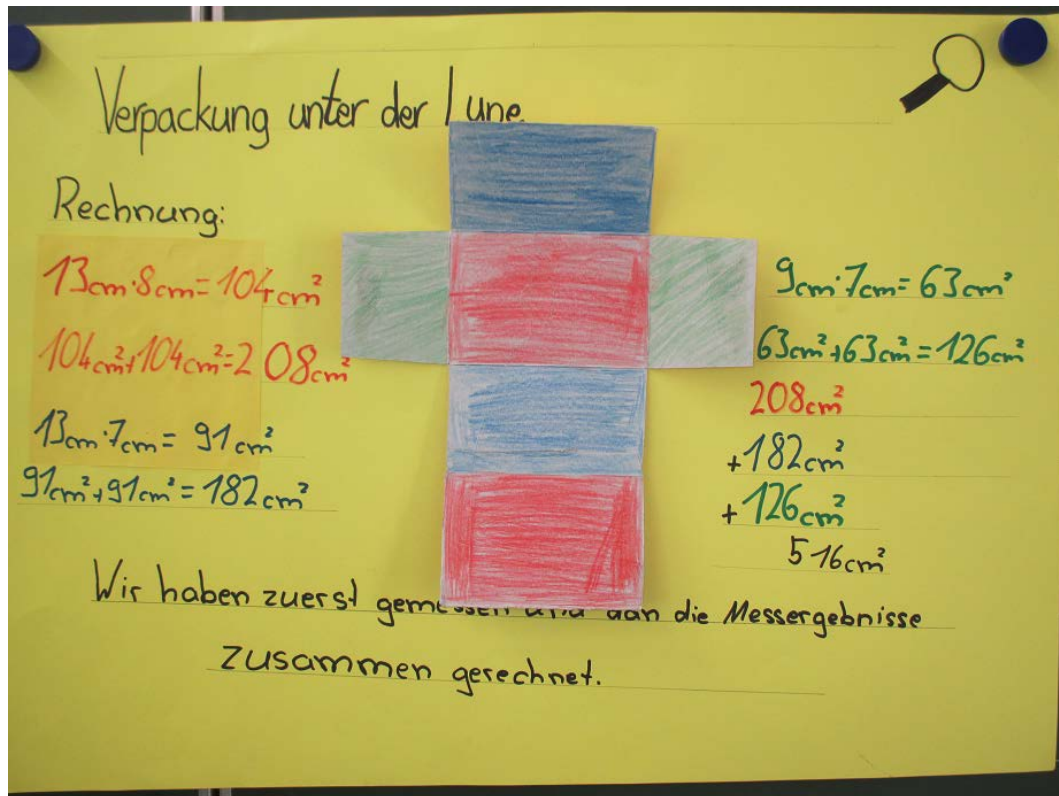 Verpackung unter der Lupe
Rechnung:
13cm·8cm=104cm²
104cm²+104cm²=208cm²
13cm·7cm= 91cm²
91cm²+91cm²=182cm²
9cm·7cm=63cm²
63cm²+63cm²=126cm²
208cm²
+182cm²
+126cm²
516cm²
Wir haben zuerst gemessen und dan die Messergebnisse
zusammen gerechnet.